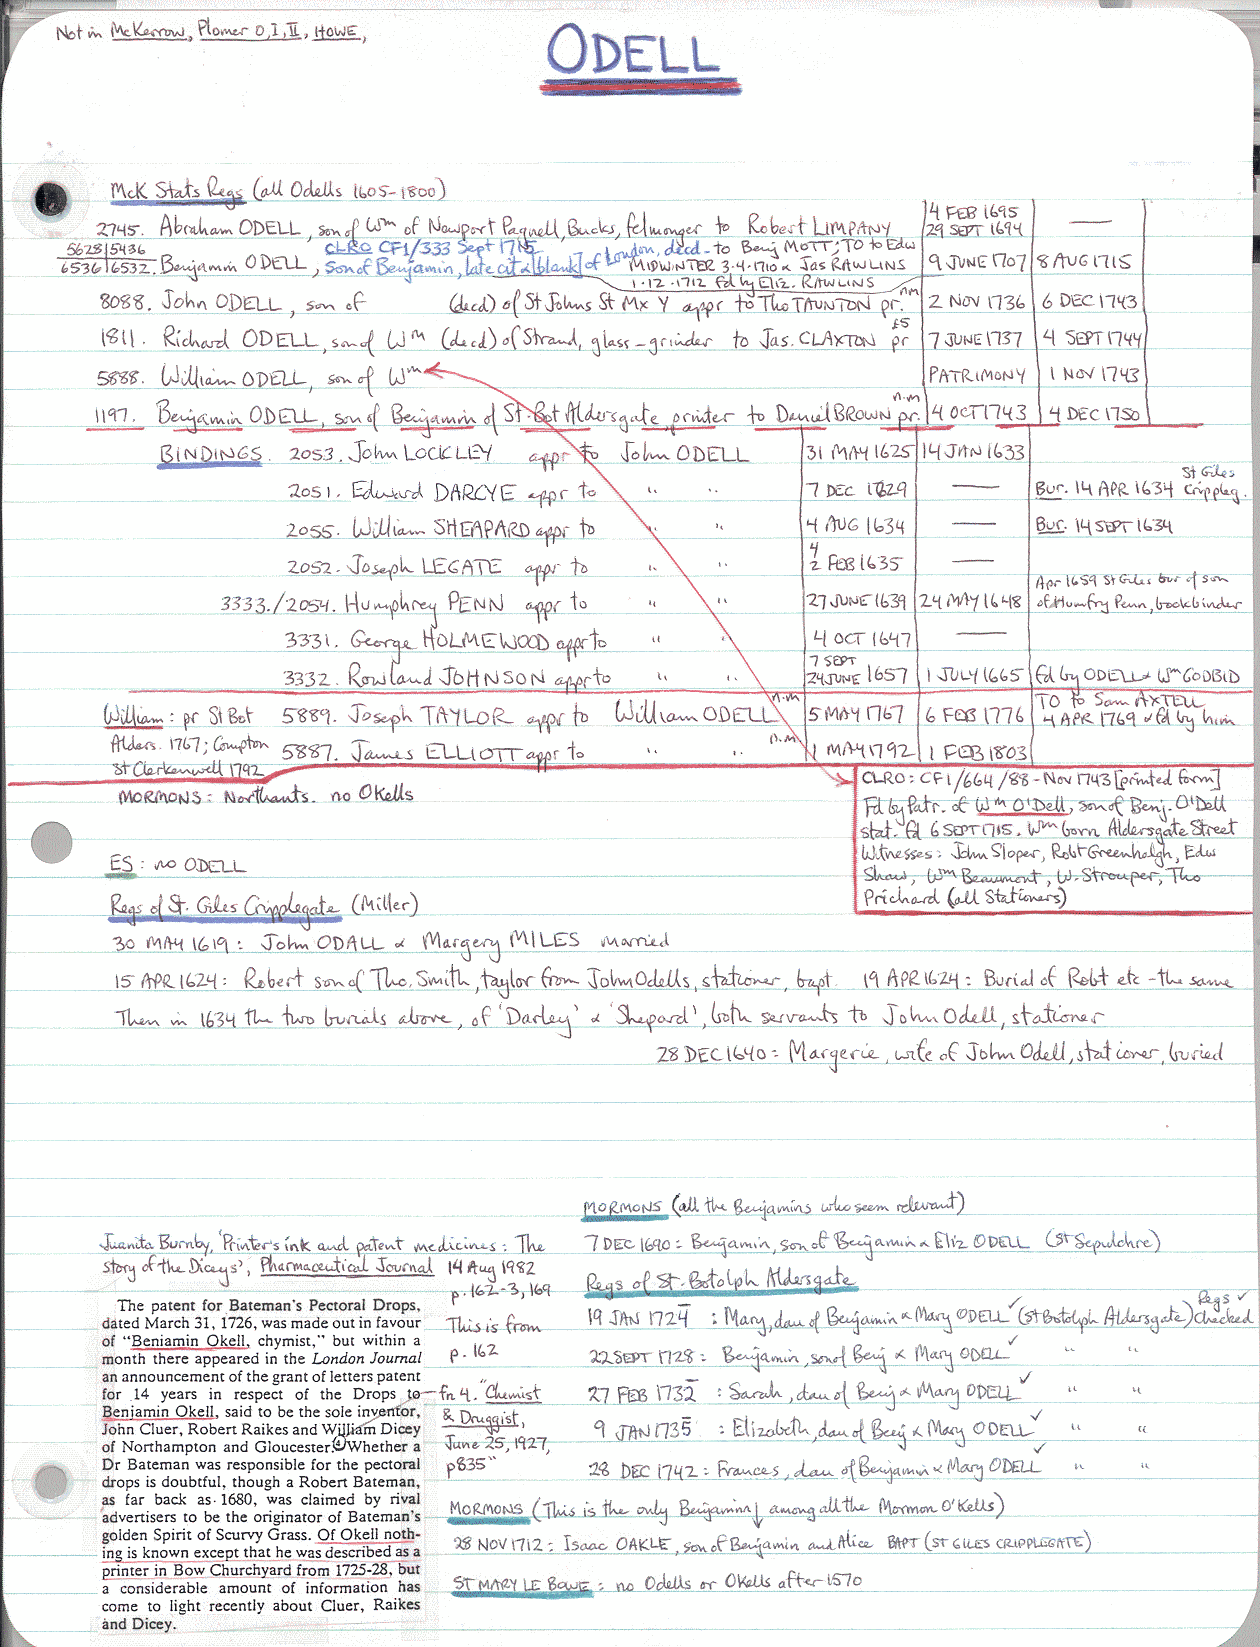 Not in McKerrow, Plomer 0, I, II, HOWE,
ODELL
McK Stats Regs (all Odells 1605-1800)
2745. Abraham ODELL, son of Wm of Newport Pagnell, Bucks, felmonger to Robert LIMPANY 4 FEB 1695 29 SEPT 1694 —
5628 5436
6536 6532. Benjamin ODELL, son of Benjamin, late cit & [blank] of London, decd - to Benj MOTT; TO to Edw 9 JUNE 1707 8 AUG 1715
CLRO CF1/333 Sept 1715
MIDWINTER 3.4.1710 & Jas RAWLINS
1.12.1712 fd by Eliz. RAWLINS
8088. John ODELL, son of (decd) of St Johns St Mx Y appr to Tho TAUNTON pr. n.m 2 NOV 1736 6 DEC 1743
1811. Richard ODELL, son of Wm (decd) of Strand, glass-grinder to Jas. CLAXTON pr £5 7 JUNE 1737 4 SEPT 1744
5888. William ODELL, son of Wm PATRIMONY 1 NOV 1743
1197. Benjamin ODELL, son of Benjamin of St. Bot Aldersgate, printer to Daniel BROWN pr. n.m 4 OCT 1743 4 DEC 1750
BINDINGS. 2053. John LOCKLEY appr to John ODELL 31 MAY 1625 14 JAN 1633
2051. Edward DARCYE appr to " " 7 DEC 1629 — Bur. 14 APR 1634 St Giles Crippleg.
2055. William SHEAPARD appr to " " 4 AUG 1634 — Bur. 14 SEPT 1634
2052. Joseph LEGATE appr to " " 4 2 FEB 1635 —
3333./2054. Humphrey PENN appr to " " 27 JUNE 1639 24 MAY 1648 Apr 1659 St Giles bur of son of Humfry Penn, bookbinder
3331. George HOLMEWOOD appr to " " 4 OCT 1647 —
3332. Rowland JOHNSON appr to " " 7 SEPT 24 JUNE 1657 1 JULY 1665 fd by ODELL & Wm GODBID
William: pr St Bot 5889. Joseph TAYLOR appr to William ODELL n.m 5 MAY 1767 6 FEB 1776 TO to Sam AXTELL 4 APR 1769 & fd by him
Alders. 1767; Compton 5887. James ELLIOTT appr to " " n.m 1 MAY 1792 1 FEB 1803
St Clerkenwell 1792
MORMONS: Northants. no OKells
CLRO: CF1/664/88 - Nov 1743 [printed form]
Fd by Patr. of Wm O'Dell, son of Benj. O'Dell
stat. fd 6 SEPT 1715. Wm born Aldersgate Street
Witnesses: John Sloper, Robt Greenhalgh, Edw
Shaw, Wm Beaumont, W. Strouper, Tho
Prichard (all Stationers)
ES: no ODELL
Regs of St. Giles Cripplegate (Miller)
30 MAY 1619: John ODALL & Margery MILES married
15 APR 1624: Robert son of Tho. Smith, taylor from John Odells, stationer, bapt. 19 APR 1624: Burial of Robt etc - the same
Then in 1634 the two burials above, of 'Darley' & 'Shepard', both servants to John Odell, stationer
28 DEC 1640: Margerie, wife of John Odell, stationer, buried
Juanita Burnby, 'Printer's ink and patent medicines: The
story of the Diceys', Pharmaceutical Journal 14 Aug 1982
p. 162-3, 169
This is from
p. 162
fn 4. "Chemist
& Druggist,
June 25, 1927,
p835"
The patent for Bateman's Pectoral Drops,
dated March 31, 1726, was made out in favour
of "Beniamin Okell, chymist," but within a
month there appeared in the London Journal
an announcement of the grant of letters patent
for 14 years in respect of the Drops to
Benjamin Okell, said to be the sole inventor,
John Cluer, Robert Raikes and William Dicey
of Northampton and Gloucester.4 Whether a
Dr Bateman was responsible for the pectoral
drops is doubtful, though a Robert Bateman,
as far back as 1680, was claimed by rival
advertisers to be the originator of Bateman's
golden Spirit of Scurvy Grass. Of Okell noth-
ing is known except that he was described as a
printer in Bow Churchyard from 1725-28, but
a considerable amount of information has
come to light recently about Cluer, Raikes
and Dicey.
MORMONS (all the Benjamins who seem relevant)
7 DEC 1690: Benjamin, son of Benjamin & Eliz ODELL (St Sepulchre)
Regs of St. Botolph Aldersgate
19 JAN 1724 : Mary, dau of Benjamin & Mary ODELL ✓ (St Botolph Aldersgate) Regs ✓ checked
22 SEPT 1728: Benjamin, son of Benj & Mary ODELL ✓ " "
27 FEB 1732 : Sarah, dau of Benj & Mary ODELL ✓ " "
9 JAN 1735 : Elizabeth, dau of Benj & Mary ODELL ✓ " "
28 DEC 1742: Frances, dau of Benjamin & Mary ODELL ✓ " "
MORMONS (This is the only Benjamin among all the Mormon O'Kells)
28 NOV 1712: Isaac OAKLE, son of Benjamin and Alice BAPT (ST GILES CRIPPLEGATE)
ST MARY LE BOWE: no Odells or OKells after 1570